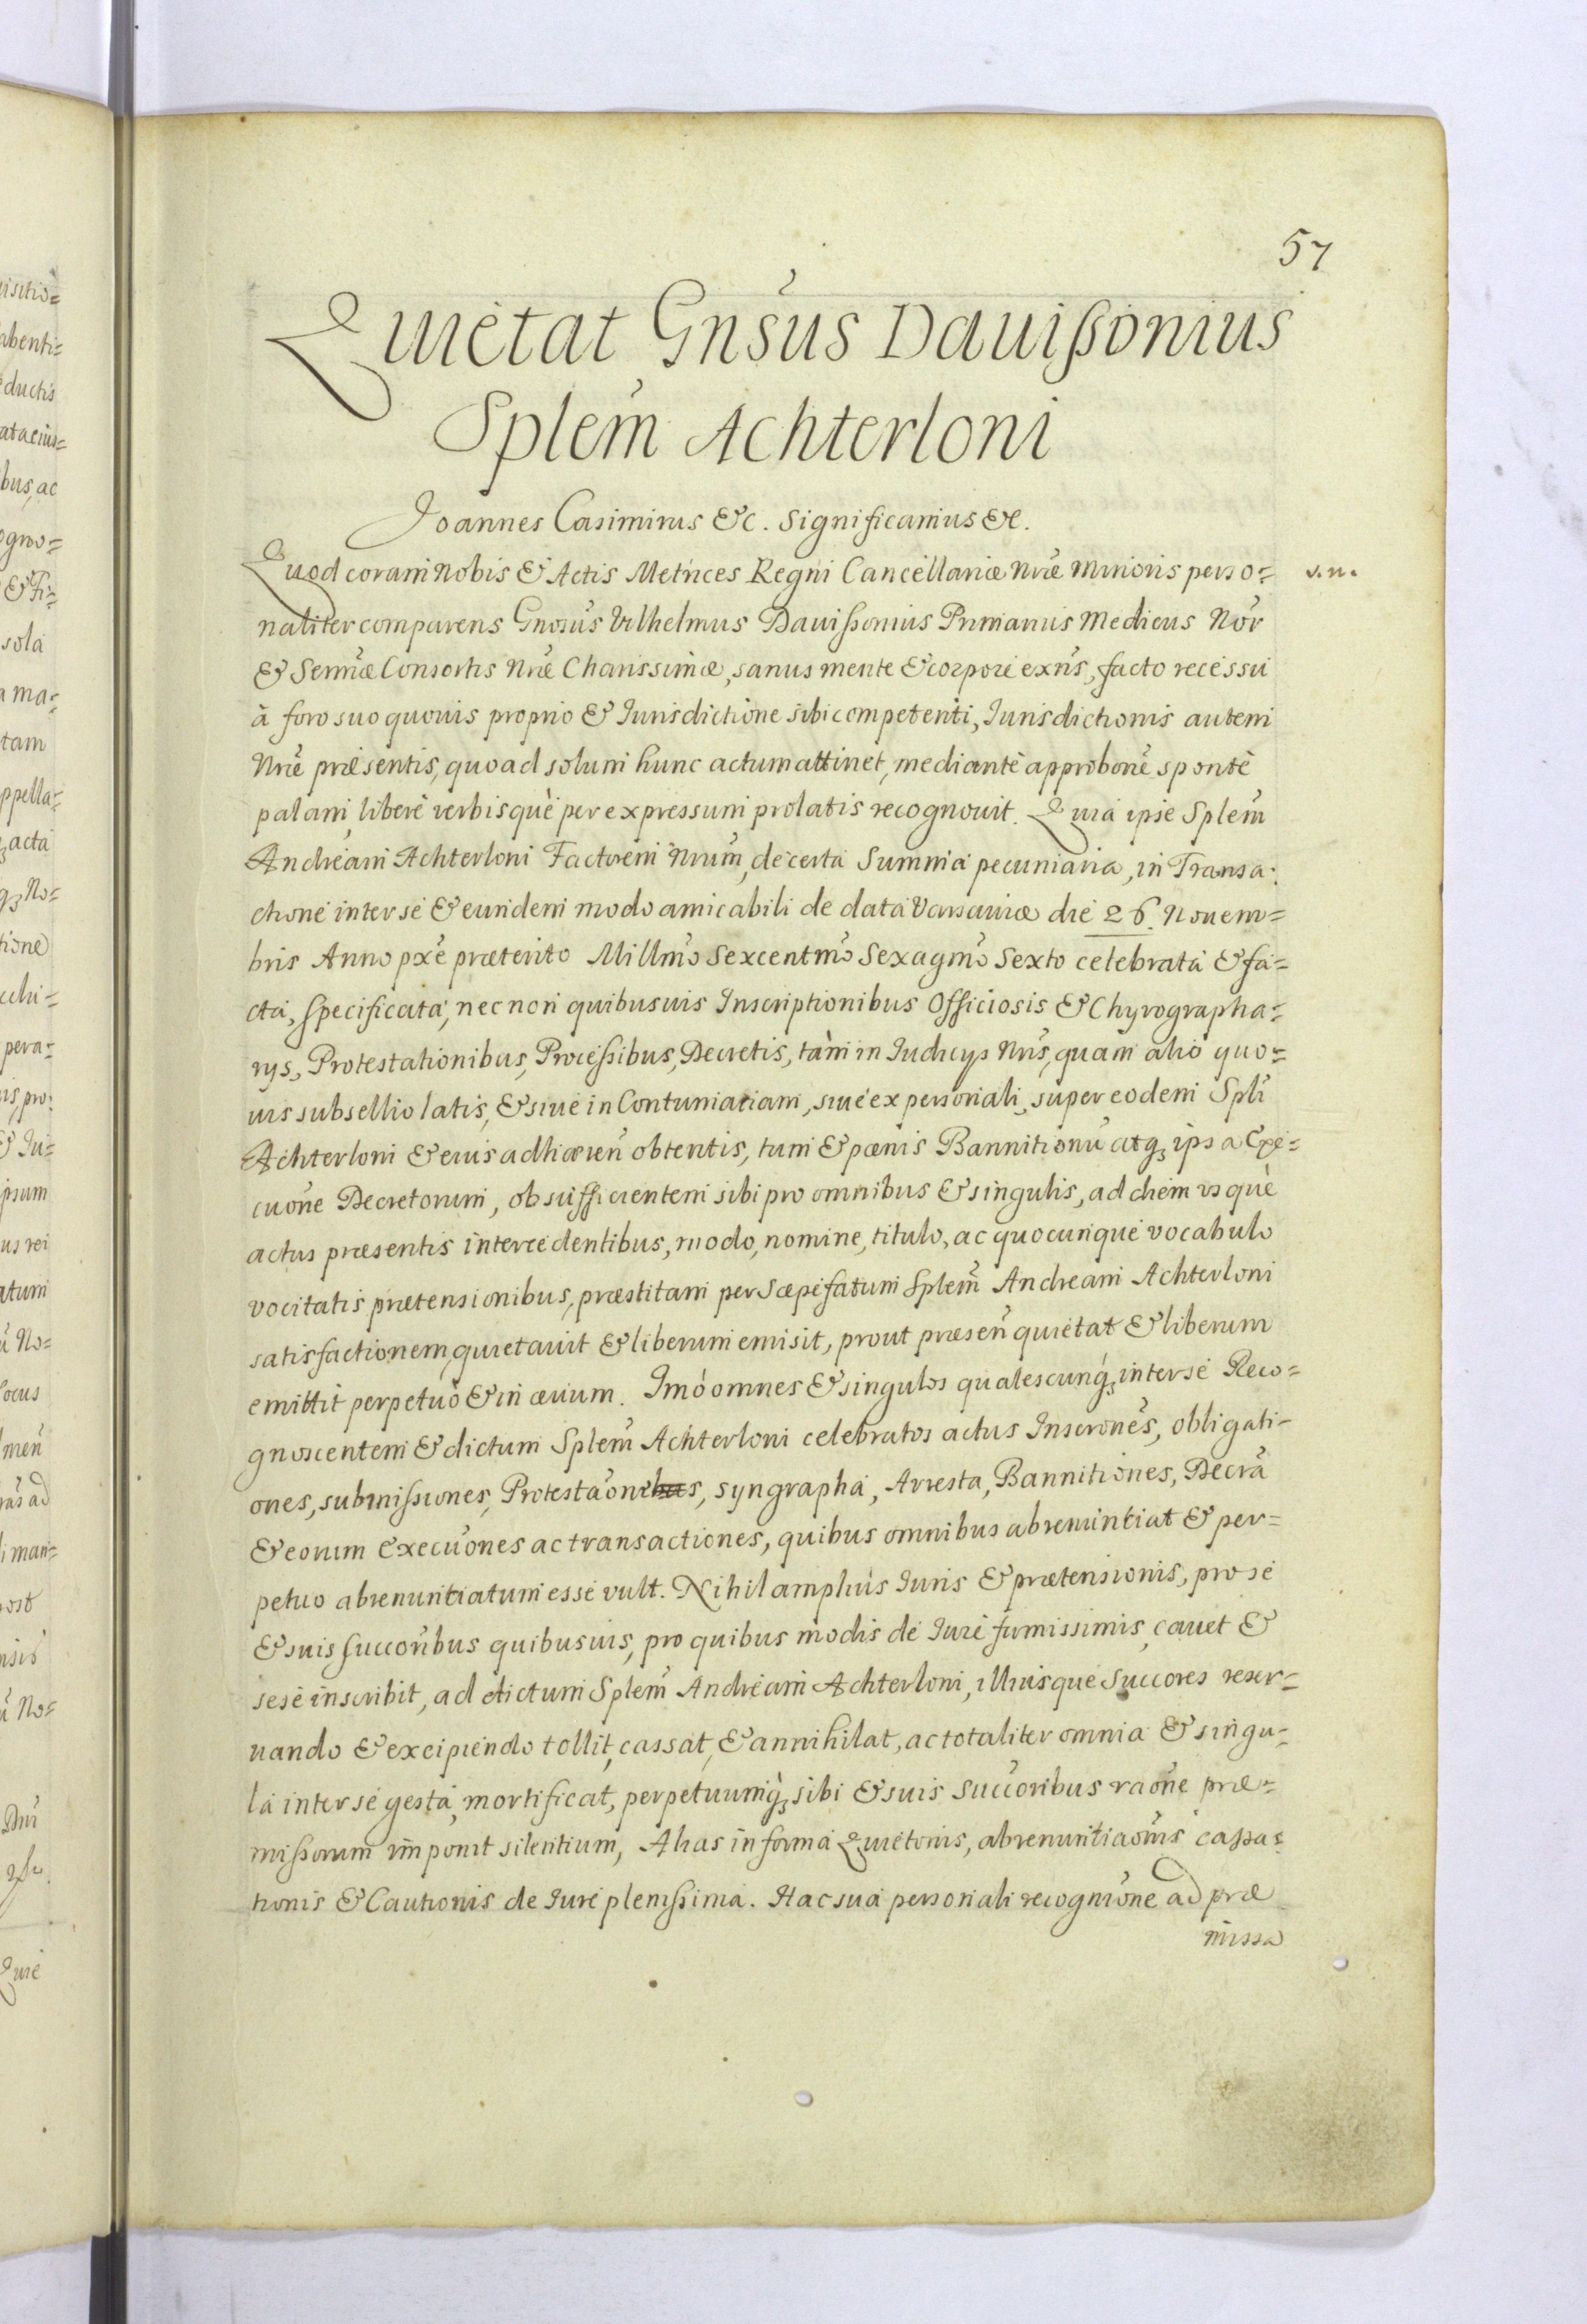 57
Quietat Gnsus Dauissonius
Splem Achterloni
Joannes Casimirus &c. Significamus &c.
Quod coram Nobis & Actis Metrices Regni Cancellariæ Nræ Minoris perso= v. n.
naliter comparens Gnosus Vilhelmus Dauissonius Primarius Medicus Nor
& Sermæ Consortis Nræ Charissimæ, sanus mente & corpore exns, facto recessu
à foro suo quouis proprio & Jurisdictione sibi competenti, Jurisdictionis autem
Nræ præsentis, quoad solum hunc actum attinet, mediante approbone sponte
palam, libere verbisque per expressum prolatis recognouit. Quia ipse Splem
Andream Achterloni Factorem Nrum, de certa Summa pecuniaria, in Transa=
ctione inter se & eundem modo amicabili de data Varsauiæ die 26. Nouem=
bris Anno pxe præterito Millmo Sexcentmo Sexagmo Sexto celebrata & fa=
cta, specificata, nec non quibusuis Inscriptionibus Officiosis & Chyrographa=
rys, Protestationibus, Processibus, Decretis, tam in Judicys Nris, quam alio quo=
uis subsellio latis, & siue in Contumatiam, siue ex personali, super eodem Spli
Achterloni & eius adhæren obtentis, tum & pænis Bannitionu atq, ipsa Exe=
cuone Decretorum, ob sufficientem sibi pro omnibus & singulis, ad diem vsque
actus præsentis intercedentibus, modo, nomine, titulo, ac quocunque vocabulo
vocitatis prætensionibus, præstitam per Sæpefatum Splem Andream Achterloni
satisfactionem, quietauit & liberum emisit, prout præsen quietat & liberum
emittit perpetuo & in æuum. Imo omnes & singulos qualescunq, inter se Reco=
gnoscentem & dictum Splem Achterloni celebratos actus Inscrones, obligati-
ones, submissiones, Protestaones, syngrapha, Arresta, Bannitiones, Decra
& eorum execuones ac transactiones, quibus omnibus abrenuntiat & per=
petuo abrenuntiatum esse vult. Nihil amplius Juris & prætensionis, pro se
& suis succoribus quibusuis, pro quibus modis de Jure firmissimis, cauet &
sese inscribit, ad dictum Splem Andream Achterloni, illiusque Succores reser=
uando & excipiendo tollit, cassat, & annihilat, ac totaliter omnia & singu=
la inter se gesta, mortificat, perpetuumq, sibi & suis Succoribus raone præ=
missorum imponit silentium, Alias in forma Quietonis, abrenuntiaonis cassa=
tionis & Cautionis de Jure plenissima. Hac sua personali recognione ad præ
missa